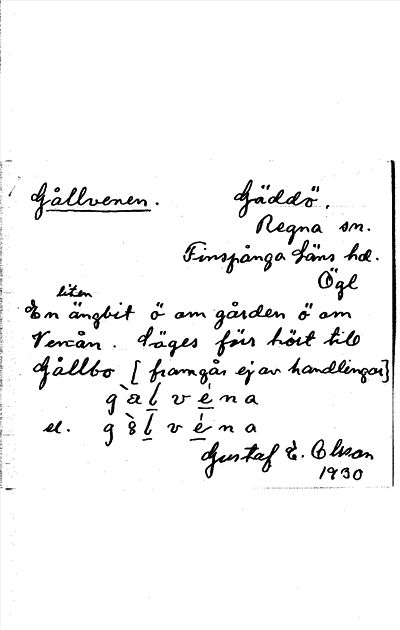 Gållvenen. Gäddö.
Regna sn.
Finspånga läns hd.
Ögl
liten
En ängbit ö om gården ö om
Venån. Säges förr hört till
Gållbo [framgår ej av handlingar]
gålvéna
el. g
Gustaf E. Olsson
1930